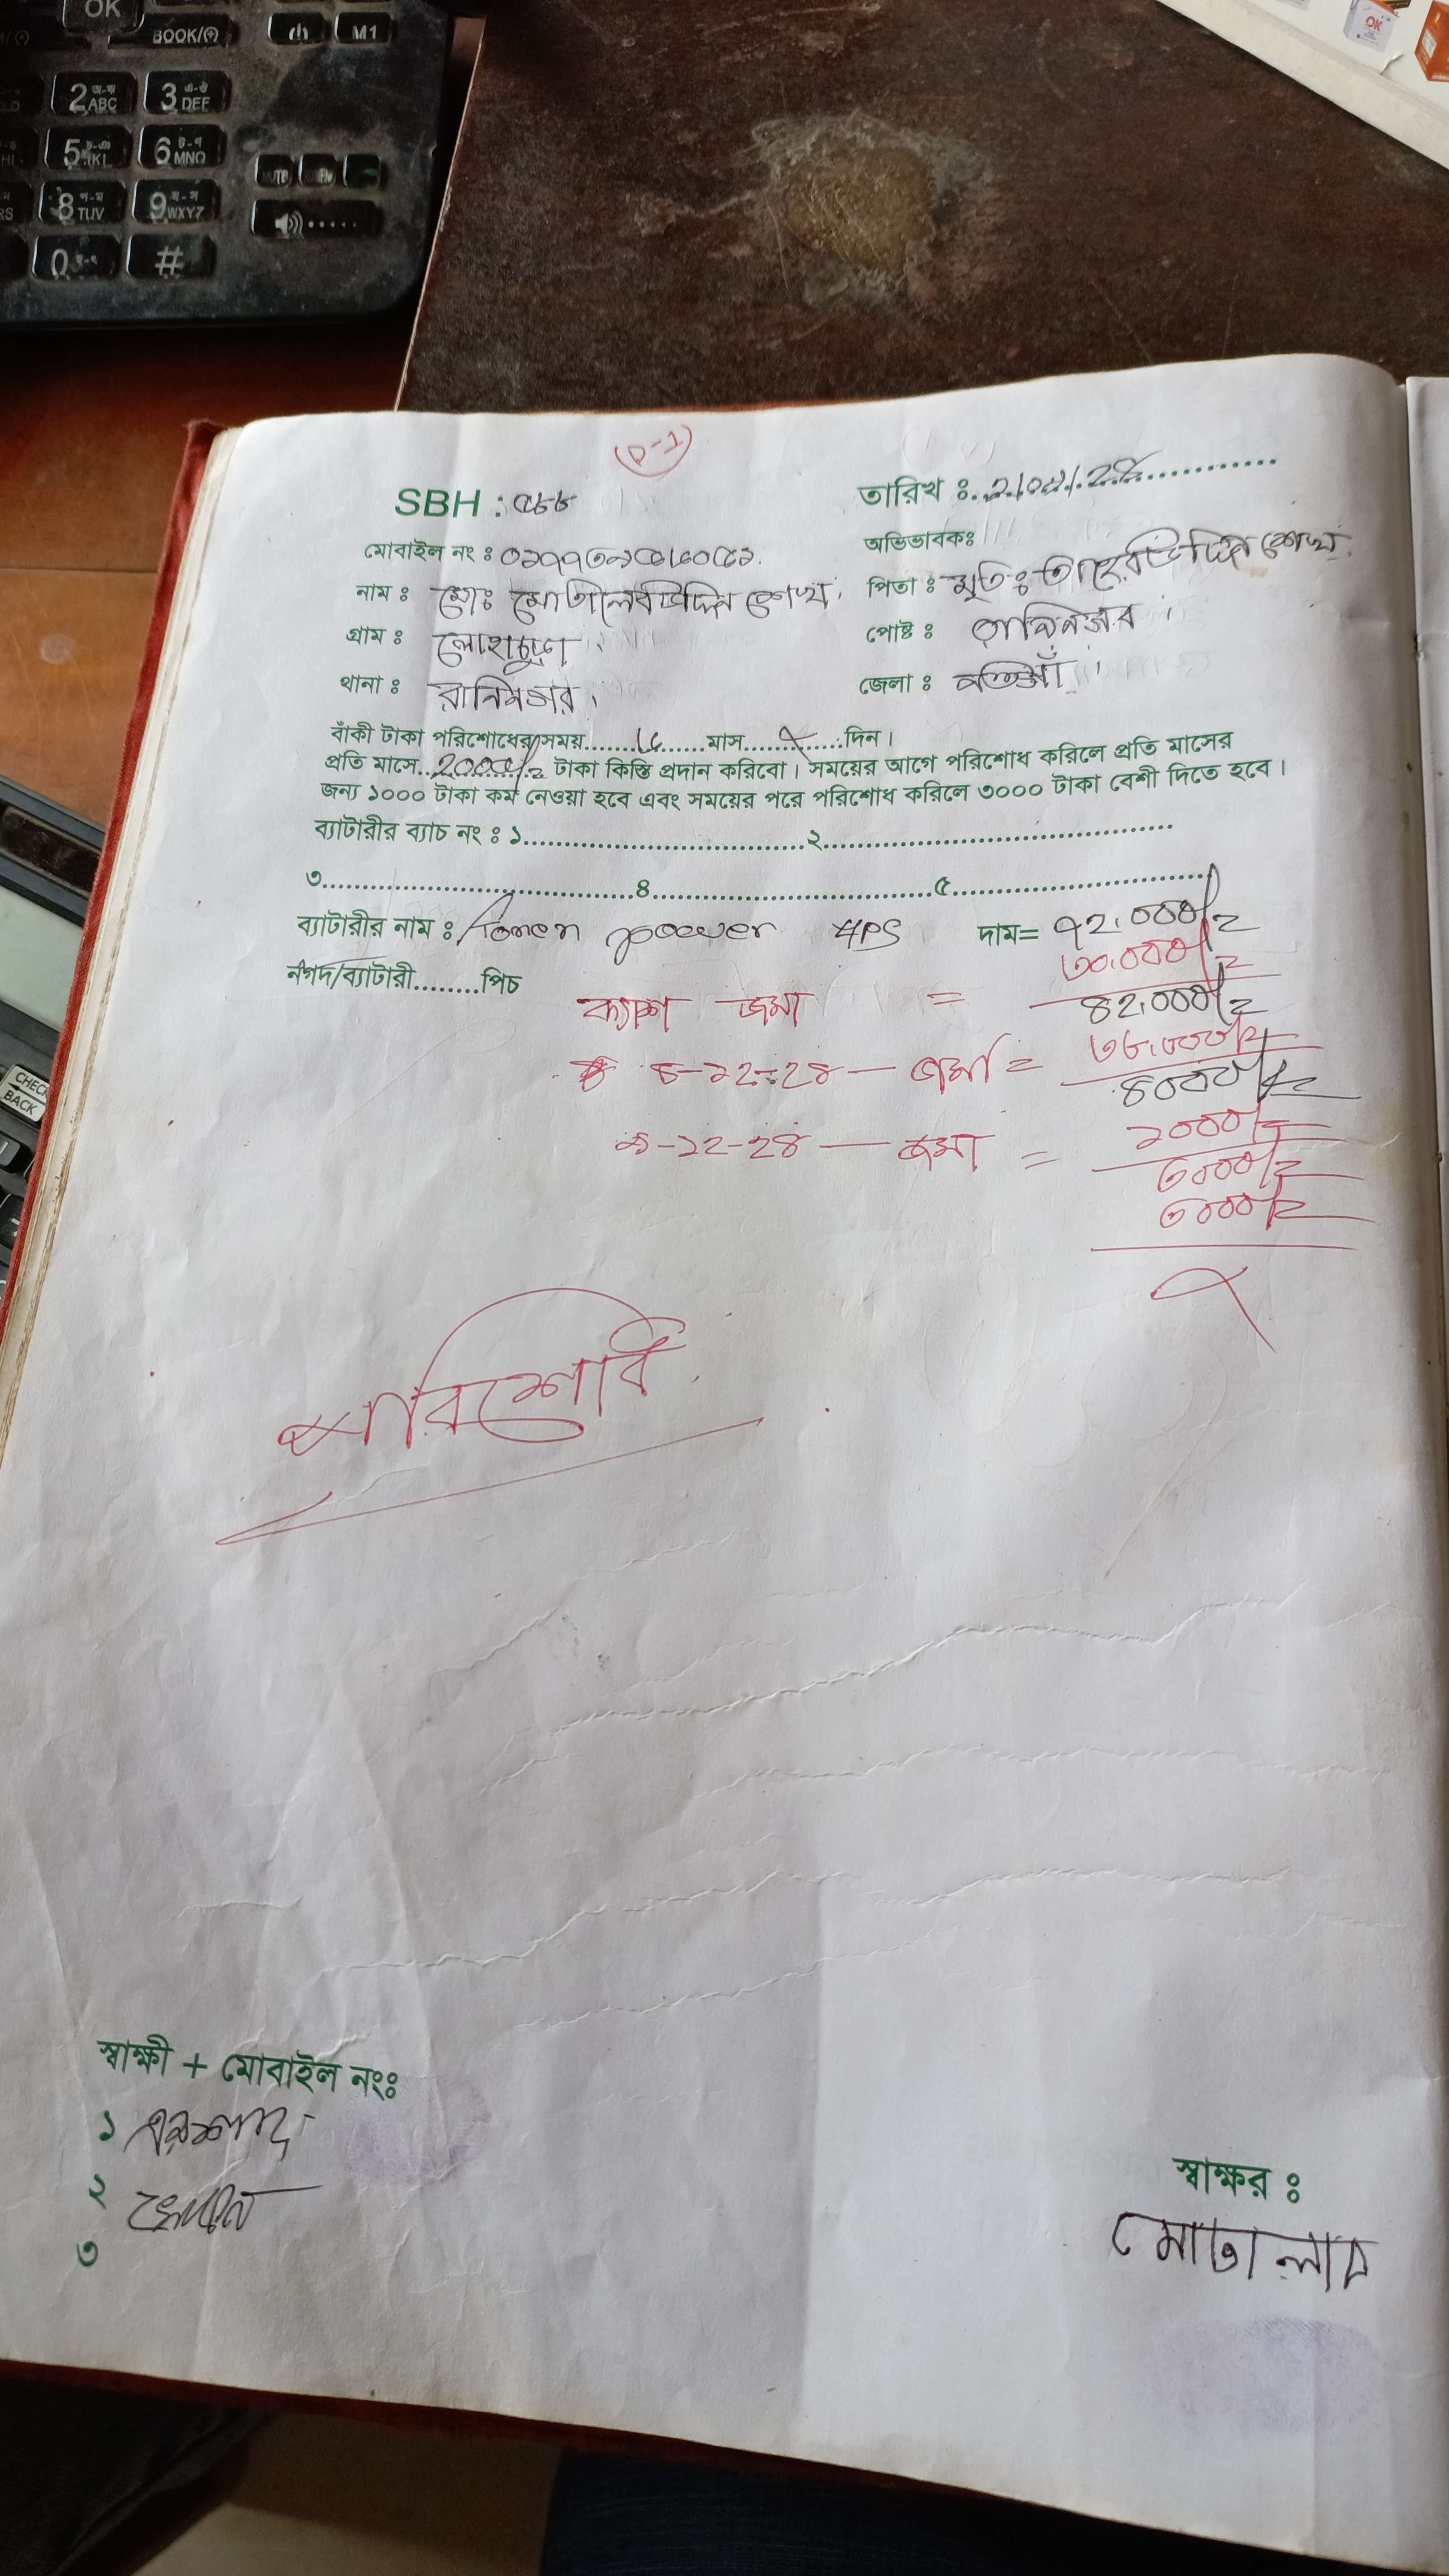 OK
BOOK/
M1
2 ABC
3 DEF
5 JKL
6 MNO
8 TUV
9 WXYZ
0
#
OK
CHECK
BACK
(P-1)
SBH : ৫৮৮
তারিখ ঃ
মোবাইল নং ঃ
অভিভাবকঃ
নাম ঃ মোঃ মোতালেবউদ্দিন শেখ
পিতা ঃ মৃতঃ তাহেরউদ্দিন শেখ
গ্রাম ঃ লোহাচুড়া
পোষ্ট ঃ রানিনগর
থানা ঃ রানিনগর
জেলা ঃ নওগাঁ
বাঁকী টাকা পরিশোধের সময়..............মাস..............দিন।
প্রতি মাসে..২০০০/=.. টাকা কিস্তি প্রদান করিবো। সময়ের আগে পরিশোধ করিলে প্রতি মাসের
জন্য ১০০০ টাকা কম নেওয়া হবে এবং সময়ের পরে পরিশোধ করিলে ৩০০০ টাকা বেশী দিতে হবে।
ব্যাটারীর ব্যাচ নং ঃ ১..............................২..............................
৩..............................৪..............................৫..............................
ব্যাটারীর নাম ঃ power 4PS দাম= ৭২,০০০/=
নগদ/ব্যাটারী........পিচ
ক্যাশ জমা = ৩০,০০০/=
৪২,০০০/=
৮-১২-২৪ — জমা = ৩৮,০০০/=
৪০০০/=
৯-১২-২৪ — জমা = ১০০০/=
৩০০০/=
৩০০০/=
পরিশোধ
স্বাক্ষী + মোবাইল নংঃ
১ এরশাদ
২
৩
স্বাক্ষর ঃ
মোতালেব